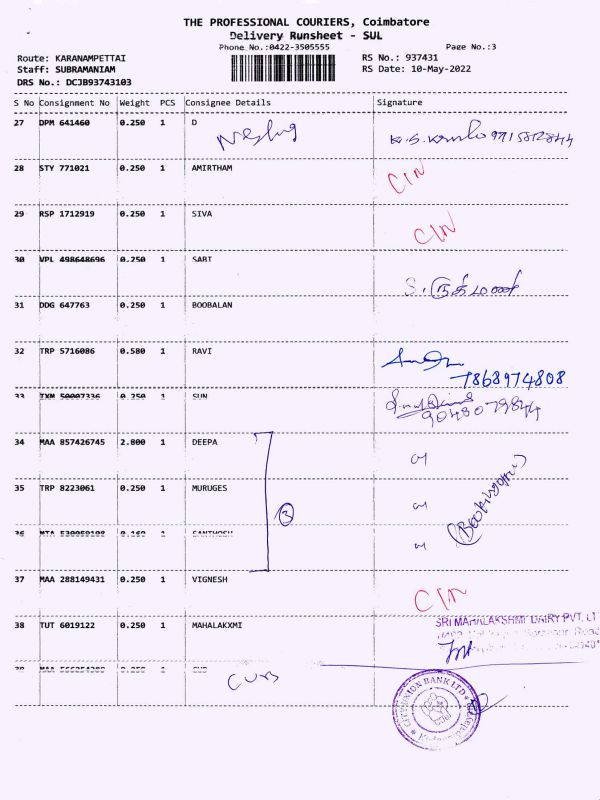 THE PROFESSIONAL COURIERS, Coimbatore
Delivery Runsheet - SUL
Phone No.:0422-3505555 Page No.:3
Route: KARANAMPETTAI RS No.: 937431
Staff: SUBRAMANIAM RS Date: 10-May-2022
DRS No.: DCJB93743103
S No Consignment No Weight PCS Consignee Details Signature
27 DPM 641460 0.250 1 D
9715812844
28 STY 771021 0.250 1 AMIRTHAM CIN
29 RSP 1712919 0.250 1 SIVA CIN
30 VPL 498648696 0.250 1 SABI
31 DDG 647763 0.250 1 BOOBALAN
32 TRP 5716086 0.580 1 RAVI
7868974808
33 TXM 50007336 0.250 1 SUN
9048079844
34 MAA 857426745 2.800 1 DEEPA
35 TRP 8223061 0.250 1 MURUGES
3
36 MTA 0.160 1 SANTHOSH
37 MAA 288149431 0.250 1 VIGNESH CIN
38 TUT 6019122 0.250 1 MAHALAKXMI
SRI MAHALAKSHMI DAIRY PVT. LT
39 MAA 0.250 1 CUB
CITY UNION BANK LTD